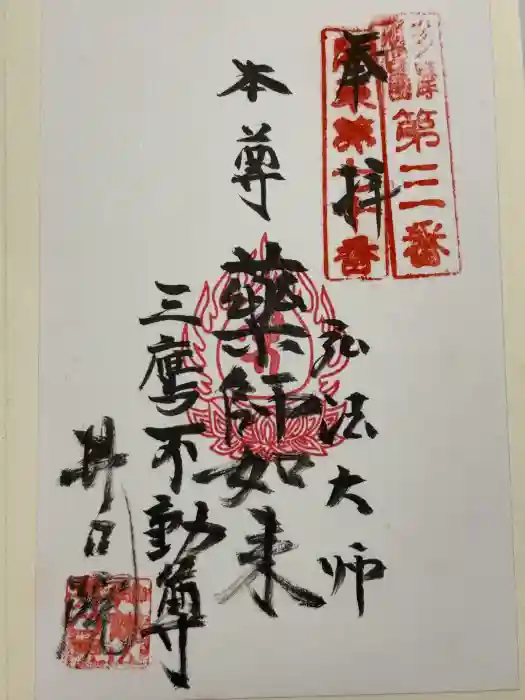 奉拝
第三番
弘法大师
本尊
薬師如来
三鷹不動尊
井口院